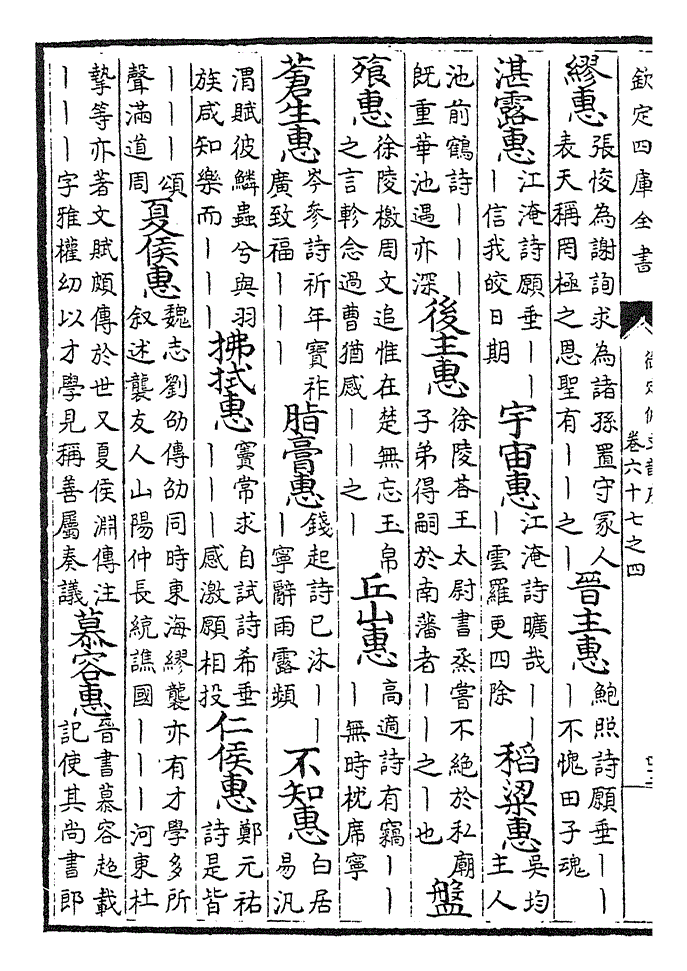 欽定四庫全書
御定佩文韻府
卷六十七之四
繆惠張悛為謝詢求為諸孫置守冢人表天稱罔極之恩聖有丨丨之丨晉主惠鮑照詩願垂丨丨丨不愧田子魂
湛露惠江淹詩願垂丨丨丨信我皎日期宇宙惠江淹詩曠哉丨丨丨雲羅更四除稻粱惠吳均主人
池前鶴詩丨丨丨既重華池遇亦深後主惠徐陵荅王太尉書烝嘗不絕於私廟子弟得嗣於南藩者丨丨之丨也盤
飱惠徐陵檄周文追惟在楚無忘玉帛之言軫念過曹猶感丨丨之丨丘山惠高適詩有竊丨丨丨無時枕席寧
蒼生惠岑參詩祈年寶祚廣致福丨丨丨脂膏惠錢起詩已沐丨丨丨寧辭雨露頻不知惠白居易汎
渭賦彼鱗蟲兮與羽族咸知樂而丨丨丨拂拭惠竇常求自試詩希垂丨丨丨感激願相投仁侯惠鄭元祐詩是皆
丨丨丨頌聲滿道周夏侯惠魏志劉劭傳劭同時東海繆襲亦有才學多所叙述襲友人山陽仲長統譙國丨丨丨河東杜
摯等亦著文賦頗傳於世又夏侯淵傳注丨丨丨字雅權幼以才學見稱善屬奏議慕容惠晉書慕容超載記使其尚書郎